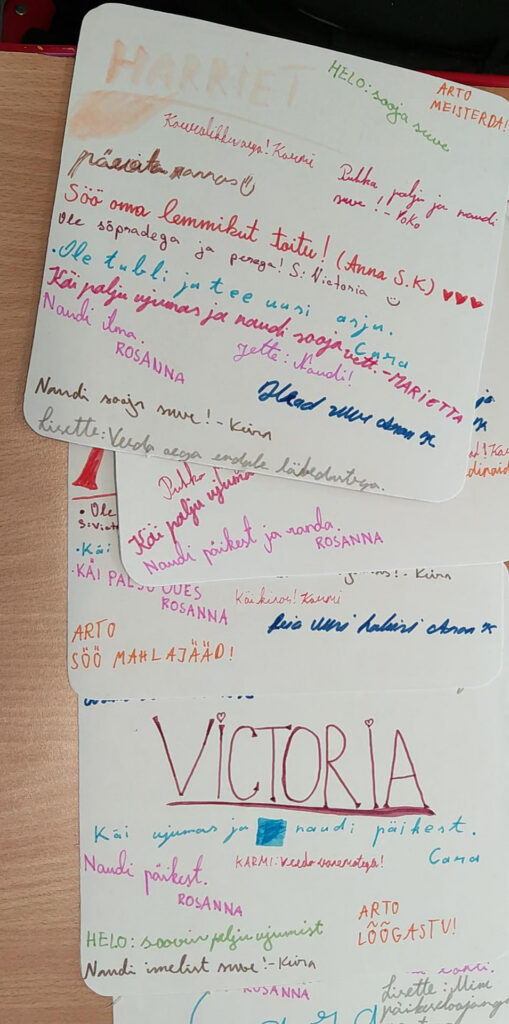 HARRIET
HELO: sooja suve
ARTO
MEISTERDA!
Karmi
Puhka palju ja naudi
suve! - Yoko
päevita rannas
Söö oma lemmikut toitu! (Anna S.K)
Ole sõpradega ja perega! S: Victoria
.Ole tubli ja tee uusi asju.
Cara
Käi palju ujumas ja naudi sooja vett. -MARIETTA
Naudi ilma.
ROSANNA
Jette: Naudi!
Naudi sooja suve! - Keira
Head suve
Lisette: Veeda aega endale lähedastega.
Puhka!
Käi palju ujuma
Naudi päikest ja randa.
ROSANNA
• Ole
S: Victo
• Käi
·KÄI PALJU ÕUES
ROSANNA
- Keira
Käi kinos! Karmi
ARTO
SÖÖ MAHLAJÄÄD!
Leia uusi
VICTORIA
Käi ujumas ja naudi päikest.
Cara
Naudi päikest.
ROSANNA
KARMI: Veeda vanematega!
HELO: soovin palju ujumist
ARTO
LÕÕGASTU!
Naudi imelist suve! - Keira
ROSANNA
Lisette: Mine